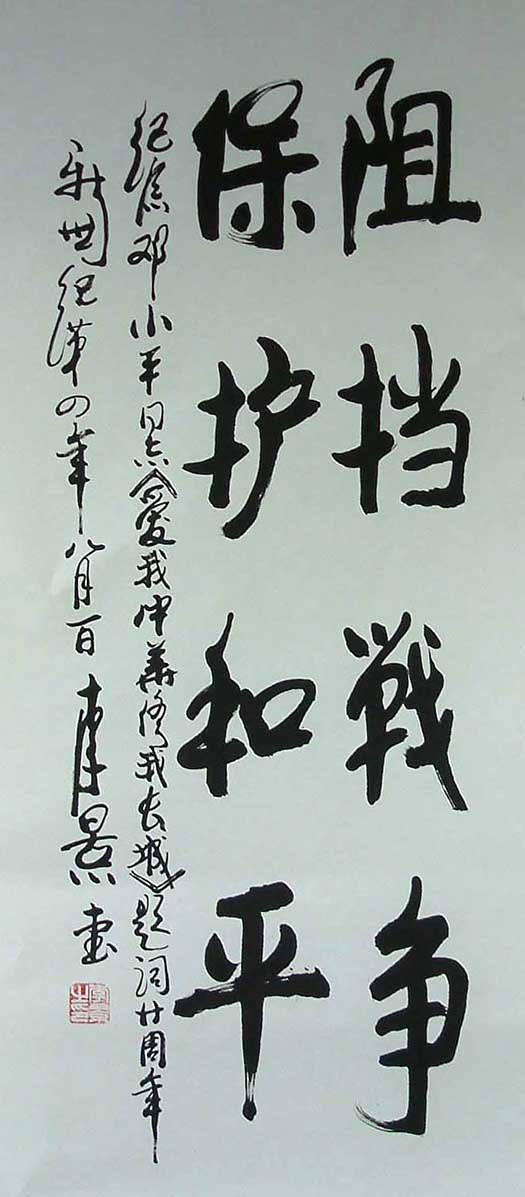 阻挡戰争
保护和平
纪念邓小平同志《爱我中華修我长城》题词廿周年
新世纪第四年八月一日李景